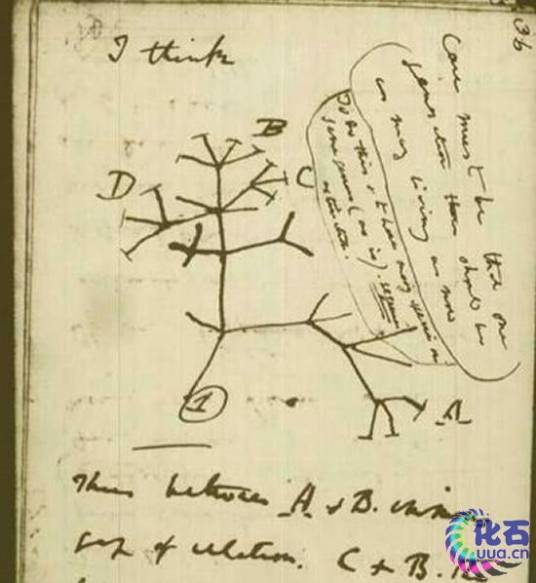 I think
36
Case must be that one
generation then should be
as many living as now
To do this & to have many species in
same genus (as is). requires
extinction.
B
C
D
A
1
Thus between A & B.
gap of relation. C & B.
化石
uua.cn